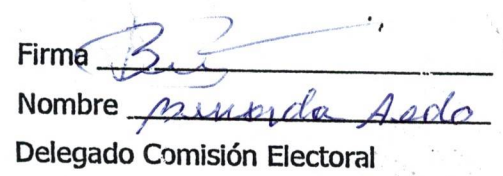 Firma
Nombre Bernarda Aedo
Delegado Comisión Electoral